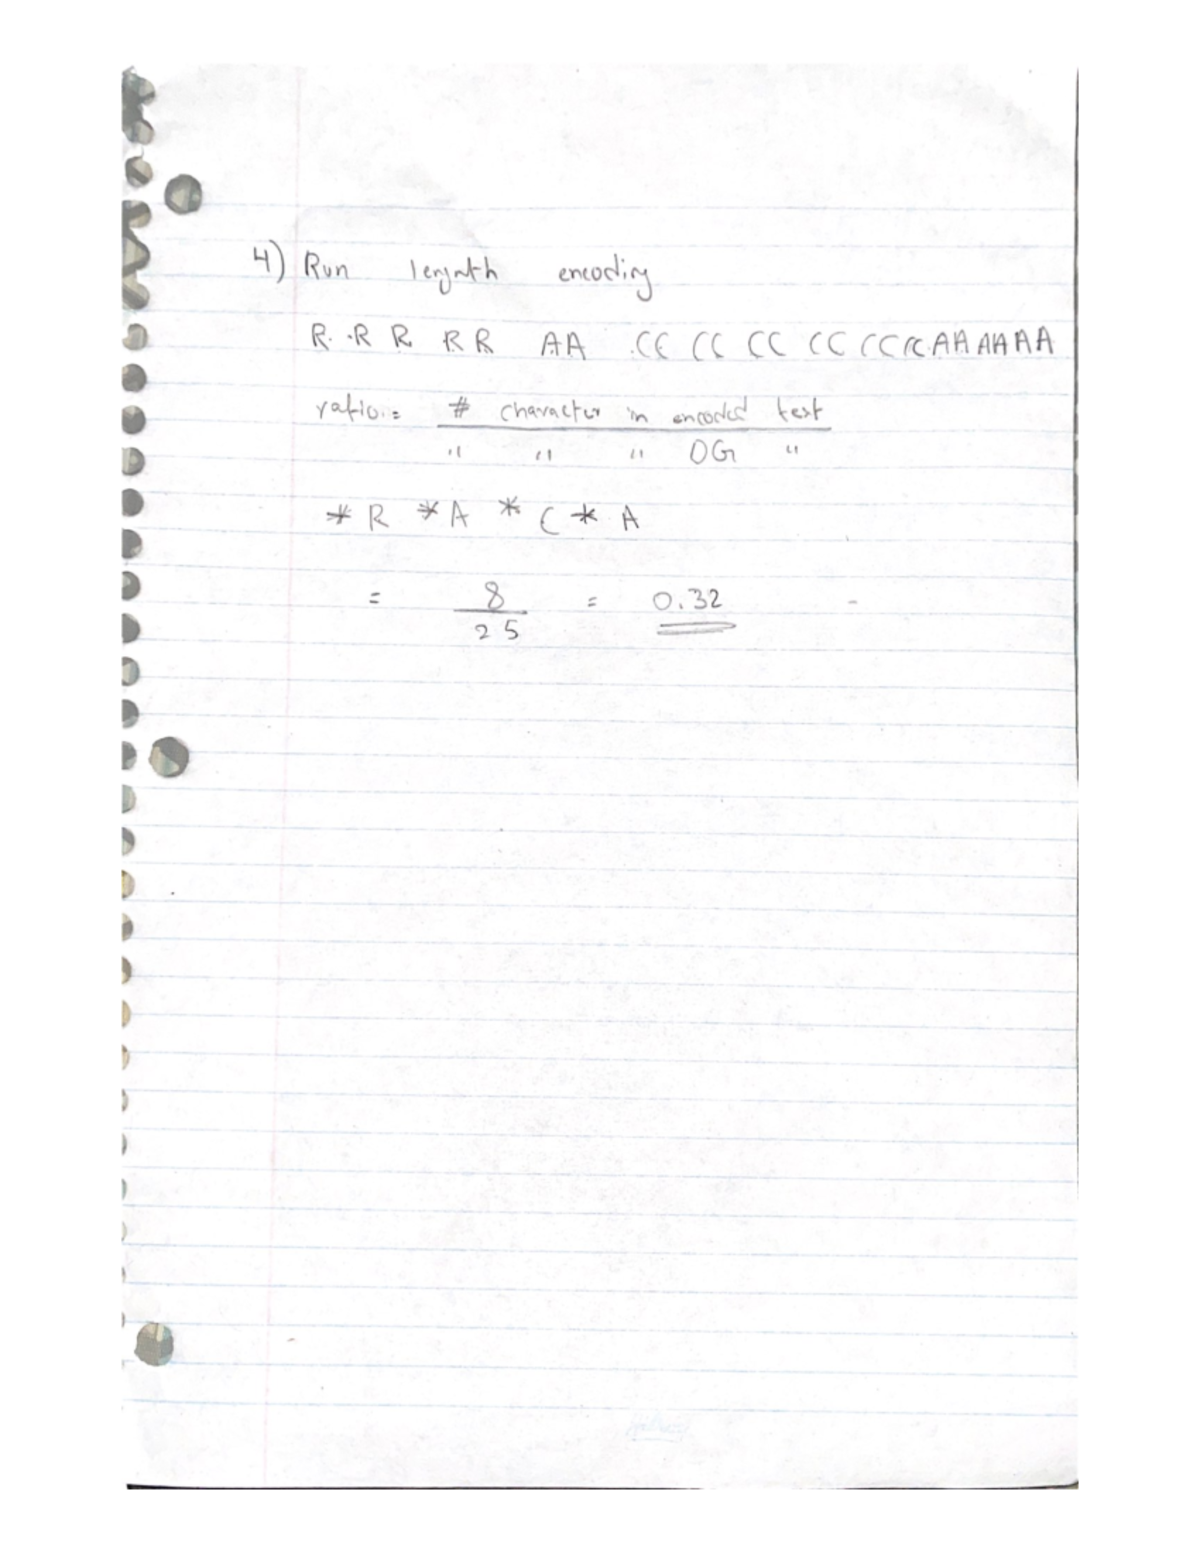 4) Run lengnth encoding
R R R R R AA CC CC CC CC CC CC AA AA AA
ratio = # character in encoded text
" " " OG "
* R * A * C * A
= 8 = 0.32
25